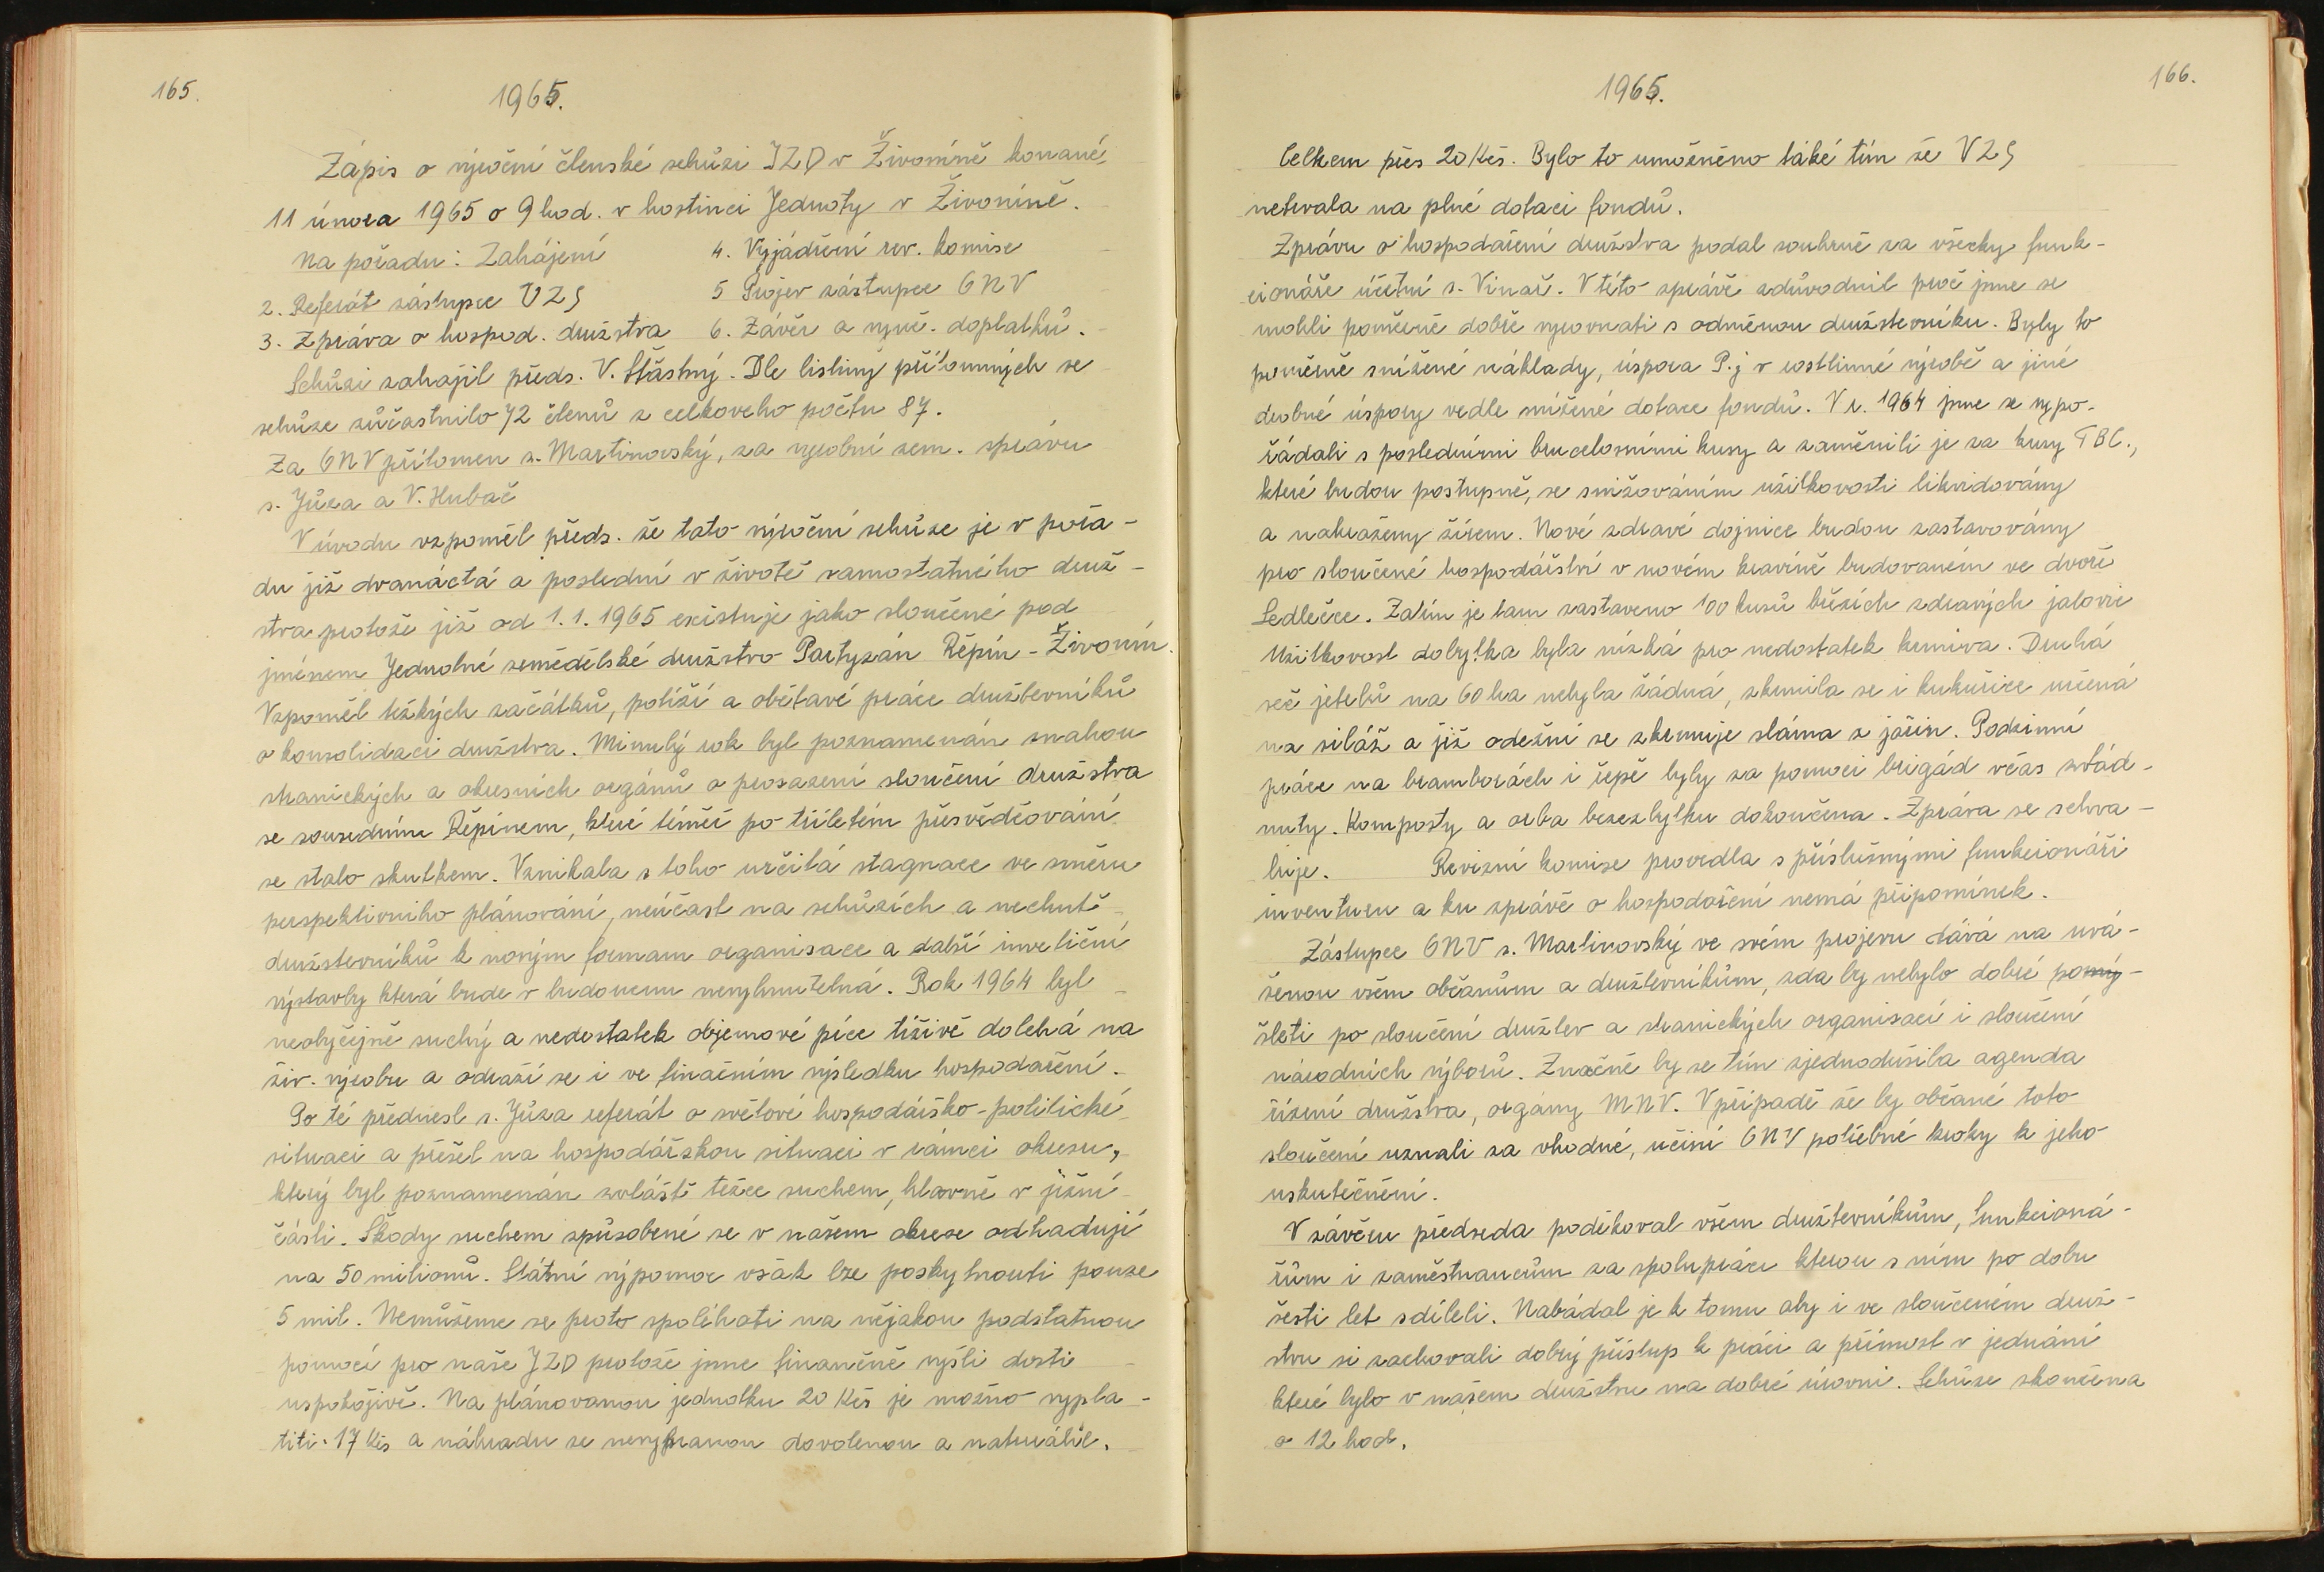 165.
1965.
Zápis o výroční členské schůzi JZD v Živoníně konané,
11 února 1965 o 9 hod. v hostinci Jednoty v Živoníně.
Na pořadu: Zahájení 4. Vyjádření rev. komise
2. Referát zástupce VZS 5 Projev zástupce ONV
3. Zpráva o hospod. družstva 6. Závěr a výpč. doplatků.
Schůzi zahájil předs. V. Šťástný. Dle listiny přítomných se
schůze zůčastnilo 72 členů z celkoveho počtu 87.
Za ONV přítomen s. Martinovský, za výrobní zem. správu
s. Jůza a V. Hubač
V úvodu vzpoměl předs. že tato výroční schůze je v pořa-
du již dvanáctá a poslední v životě samostatného druž-
stva protože již od 1. 1. 1965 existuje jako sloučené pod
jménem Jednotné zemědělské družstvo Partyzán Řepín - Živonín.
Vzpoměl těžkých začátků, potíží a obětavé práce družstevníků
o konsolidaci družstva. Minulý rok byl poznamenán snahou
stranických a okresních orgánů o prosazení sloučení družstva
se sousedním Řepínem, které téměř po tříletém přesvědčování
se stalo skutkem. Vznikala s toho určitá stagnace ve směru
perspektivního plánování, neúčast na schůzích a nechutě
družstevníků k novým formam organisace a další investiční
výstavby která bude v budoucnu nevyhnutelná. Rok 1964 byl
neobyčejně suchý a nedostatek objemové píce tíživě doléhá na
živ. výrobu a odráží se i ve finačním výsledku hospodaření.
Po té přednesl s. Jůza referát o světové hospodářsko-politické
situaci a přešel na hospodářskou situaci v rámci okresu,
který byl poznamenán zvláště težce suchem, hlavně v jižní
části. Škody suchem způsobené se v našem okrese odhadují
na 50 milionů. Státní výpomoc však lze poskytnouti pouze
5 mil. Nemůžeme se proto spoléhati na nějakou podstatnou
pomocí pro naše JZD protože jsme finančně vyšli dosti
uspokojivě. Na plánovanou jednotku 20 Kčs je možno vypla-
titi 17 Kčs a náhradu za nevybranou dovolenou a naturálie.
166.
1965.
Celkem přes 20 Kčs. Bylo to umožněno táké tím že VZS
netrvala na plné dotaci fondů.
Zprávu o hospodaření družstva podal souhrně za všecky funk-
cionáře účetní s. Vinař. V této zprávě zdůvodnil proč jsme se
mohli poměrně dobře vyrovnati s odměnou družstevníku. Byly to
poměrně snížené náklady, úspora P.j v rostlinné výrobě a jiné
drobné úspory vedle snížené dotace fondů. V r. 1964 jsme se vypo-
řádali s posledními brucelosními kusy a zaměnili je za kusy TBC.,
které budou postupně, se snižováním užitkovosti likvidovány
a nahraženy žírem. Nové zdravé dojnice budou zastavovány
pro sloučené hospodářství v novém kravíně budovaném ve dvoře
Sedlečce. Zatím je tam zastaveno 100 kusů březích zdravých jalovic
Užitkovost dobytka byla nízká pro nedostatek krmiva. Druhá
seč jetelů na 60 ha nebyla žádná, zkrmila se i kukuřice určená
na siláž a již ode žní se zkrmuje sláma z jařin. Podzimní
práce na bramborách i řepě byly za pomoci brigád včas zvlád-
nuty. Komposty a orba bezezbytku dokončena. Zpráva se schva-
luje. Revizní komise provedla s příslušnými funkcionáři
inventuru a ku zprávě o hospodaření nemá připomínek.
Zástupce ONV s. Martinovský ve svém projevu dává na uvá-
ženou všem občanům a družtevníkům, zda by nebylo dobré pomý-
šleti po sloučení družtev a stranických organisací i sloučení
národních výborů. Značně by se tím zjednodušila agenda
řízení družstva, orgány MNV. V případě že by občané toto
sloučení uznali za vhodné, učiní ONV potřebné kroky k jeho
uskutečnění.
V závěru předseda poděkoval všem družtevníkům, funkcioná-
řům i zaměstnancům za spolupráci kterou s ním po dobu
šesti let sdíleli. Nabádal je k tomu aby i ve sloučeném druž-
stvu si zachovali dobrý přístup k práci a přímost v jednání
které bylo v našem družstvu na dobré úrovni. Schůze skončena
o 12 hod.